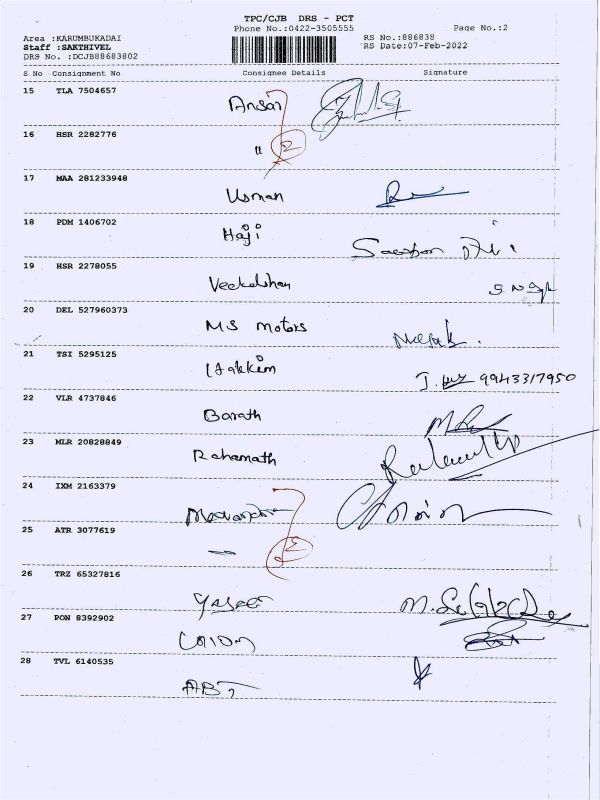 TPC/CJB DRS - PCT
Phone No.:0422-3505555
Page No.:2
Area :KARUMBUKADAI
RS No.:886838
Staff :SAKTHIVEL
RS Date:07-Feb-2022
DRS No. :DCJB88683802
S No Consignment No Consignee Details Signature
15 TLA 7504657
Ansar
16 HSR 2282776
" 2
17 MAA 281233948
Usman
18 PDM 1406702
Haji
19 HSR 2278055
Veekalshan
20 DEL 527960373
MS Motors
21 TSI 5295125
Hakkim
9943317950
22 VLR 4737846
Barath
23 MLR 20828849
Rahamath
24 IXM 2163379
25 ATR 3077619
2
26 TRZ 65327816
Yaseer
27 PON 8392902
28 TVL 6140535
ABT